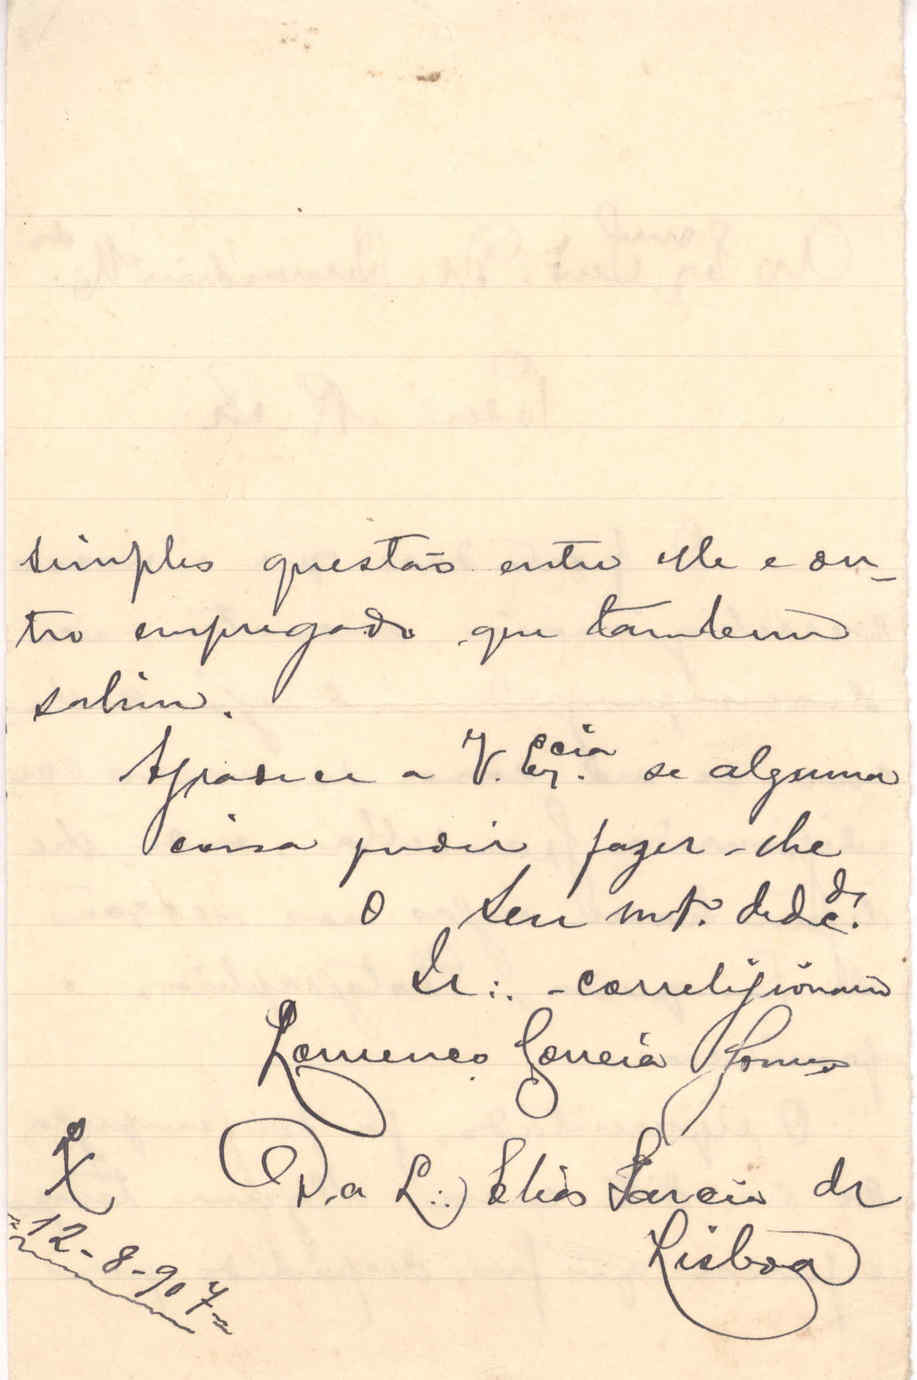 simples questão entre elle e ou-
tro empregado que tambem
sahiu.
Agradece a V. Ex.cia se alguma
coisa puder fazer-lhe
O Seu mt.º dedc.do
Ir∴ - correligionario
Lourenço Correia Gomes
Da L∴ Elias Garcia de
Lisboa
Lx
12-8-907